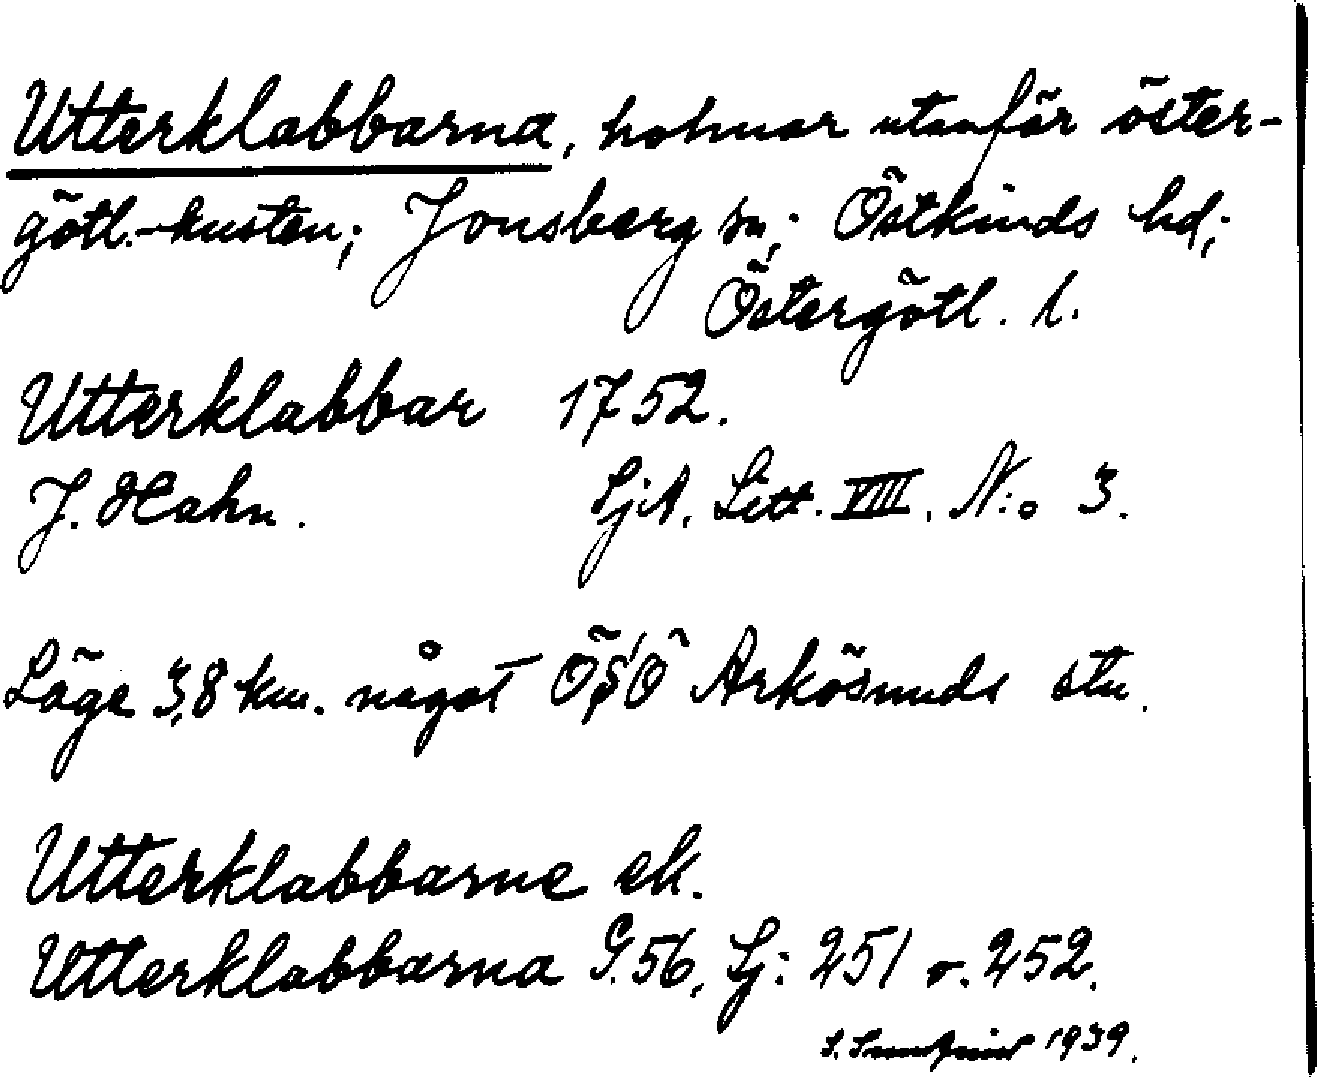 Utterklabbarna, holmar utanför öster-
götl.-kusten; Jonsberg sn; Östkinds hd;
Östergötl. l.
Utterklabbar 1752.
J. Hahn. SjA. Litt. VIII. N:o 3.
Läge 3,8 km. något ÖSÖ Arkösunds stn.
Utterklabbarne ek.
Utterklabbarna G. 56, Sj: 251 o. 252.
S. 1939.